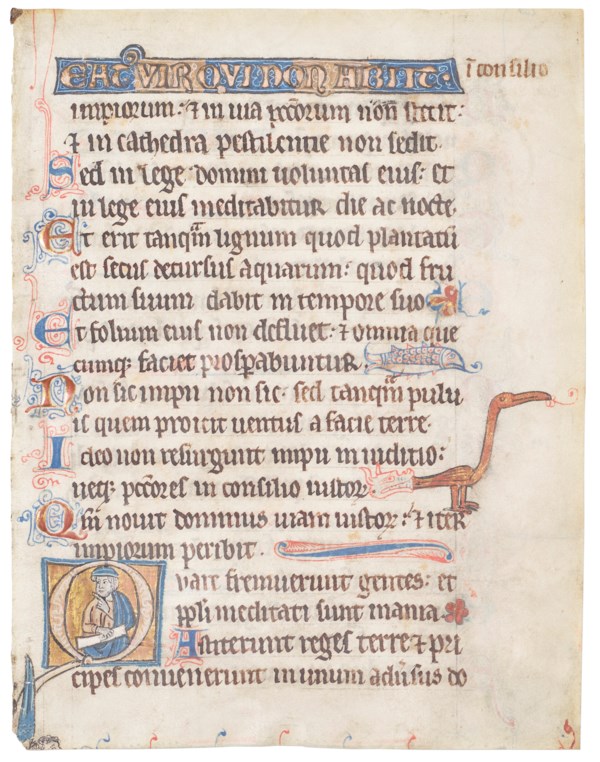 EAT' VIR QVI NON ABIIT· ī consilio
impiorum: ⁊ in uia peccorum non stetit:
⁊ in cathedra pestilentie non sedit.
Sed in lege domini uoluntas eius: et
in lege eius meditabitur die ac nocte.
Et erit tanqm̄ lignum quod plantatū
est secus decursus aquarum: quod fru
ctum suum dabit in tempore suo
Et folium eius non defluet: ⁊ omnia que
cumq; faciet prospabuntur.
Non sic impii non sic. sed tanqm̄ pului
is quem proicit uentus a facie terre.
Ideo non resurgunt impii in iuditio:
neq; pc̄cores in consilio iustoꝝ.
Qm̄ nouit dominus uiam iustoꝝ: ⁊ iter
impiorum peribit.
Quare fremuerunt gentes: et
ppl̄i meditati sunt inania
Astiterunt reges terre ⁊ pri
cipes conuenerunt in unum adūsus do